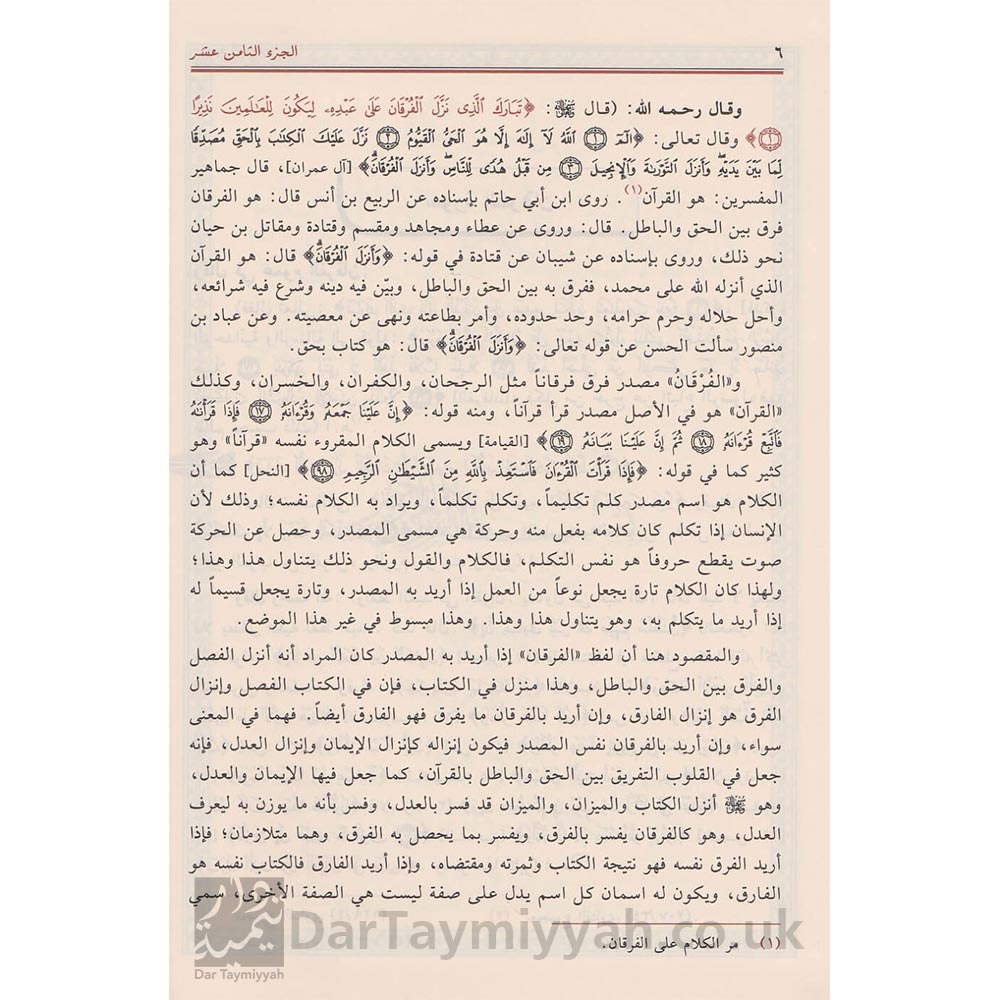 ٦ الجزء الثامن عشر
وقال رحمه الله: (قال ﷻ: ﴿تَبَارَكَ ٱلَّذِى نَزَّلَ ٱلْفُرْقَانَ عَلَىٰ عَبْدِهِۦ لِيَكُونَ لِلْعَٰلَمِينَ نَذِيرًا
﴿١﴾﴾ وقال تعالى: ﴿الٓمٓ ﴿١﴾ ٱللَّهُ لَآ إِلَٰهَ إِلَّا هُوَ ٱلْحَىُّ ٱلْقَيُّومُ ﴿٢﴾ نَزَّلَ عَلَيْكَ ٱلْكِتَٰبَ بِٱلْحَقِّ مُصَدِّقًا
لِّمَا بَيْنَ يَدَيْهِ وَأَنزَلَ ٱلتَّوْرَىٰةَ وَٱلْإِنجِيلَ ﴿٣﴾ مِن قَبْلُ هُدًى لِّلنَّاسِ وَأَنزَلَ ٱلْفُرْقَانَ﴾ [آل عمران]، قال جماهير
المفسرين: هو القرآن(١). روى ابن أبي حاتم بإسناده عن الربيع بن أنس قال: هو الفرقان
فرق بين الحق والباطل. قال: وروي عن عطاء ومجاهد ومقسم وقتادة ومقاتل بن حيان
نحو ذلك، وروى بإسناده عن شيبان عن قتادة في قوله: ﴿وَأَنزَلَ ٱلْفُرْقَانَ﴾ قال: هو القرآن
الذي أنزله الله على محمد، ففرق به بين الحق والباطل، وبيّن فيه دينه وشرع فيه شرائعه،
وأحل حلاله وحرم حرامه، وحد حدوده، وأمر بطاعته ونهى عن معصيته. وعن عباد بن
منصور سألت الحسن عن قوله تعالى: ﴿وَأَنزَلَ ٱلْفُرْقَانَ﴾ قال: هو كتاب بحق.
و«الفُرْقَانُ» مصدر فرق فرقاناً مثل الرجحان، والكفران، والخسران، وكذلك
«القرآن» هو في الأصل مصدر قرأ قرآناً، ومنه قوله: ﴿إِنَّ عَلَيْنَا جَمْعَهُۥ وَقُرْءَانَهُۥ ﴿١٧﴾ فَإِذَا قَرَأْنَٰهُ
فَٱتَّبِعْ قُرْءَانَهُۥ ﴿١٨﴾ ثُمَّ إِنَّ عَلَيْنَا بَيَانَهُۥ ﴿١٩﴾﴾ [القيامة] ويسمى الكلام المقروء نفسه «قرآناً» وهو
كثير كما في قوله: ﴿فَإِذَا قَرَأْتَ ٱلْقُرْءَانَ فَٱسْتَعِذْ بِٱللَّهِ مِنَ ٱلشَّيْطَٰنِ ٱلرَّجِيمِ ﴿٩٨﴾﴾ [النحل] كما أن
الكلام هو اسم مصدر كلم تكليماً، وتكلم تكلماً، ويراد به الكلام نفسه؛ وذلك لأن
الإنسان إذا تكلم كان كلامه بفعل منه وحركة هي مسمى المصدر، وحصل عن الحركة
صوت يقطع حروفاً هو نفس التكلم، فالكلام والقول ونحو ذلك يتناول هذا وهذا؛
ولهذا كان الكلام تارة يجعل نوعاً من العمل إذا أريد به المصدر، وتارة يجعل قسيماً له
إذا أريد ما يتكلم به، وهو يتناول هذا وهذا. وهذا مبسوط في غير هذا الموضع.
والمقصود هنا أن لفظ «الفرقان» إذا أريد به المصدر كان المراد أنه أنزل الفصل
والفرق بين الحق والباطل، وهذا منزل في الكتاب، فإن في الكتاب الفصل وإنزال
الفرق هو إنزال الفارق، وإن أريد بالفرقان ما يفرق فهو الفارق أيضاً. فهما في المعنى
سواء، وإن أريد بالفرقان نفس المصدر فيكون إنزاله كإنزال الإيمان وإنزال العدل، فإنه
جعل في القلوب التفريق بين الحق والباطل بالقرآن، كما جعل فيها الإيمان والعدل،
وهو ﷻ أنزل الكتاب والميزان، والميزان قد فسر بالعدل، وفسر بأنه ما يوزن به ليعرف
العدل، وهو كالفرقان يفسر بالفرق، ويفسر بما يحصل به الفرق، وهما متلازمان؛ فإذا
أريد الفرق نفسه فهو نتيجة الكتاب وثمرته ومقتضاه، وإذا أريد الفارق فالكتاب نفسه هو
الفارق، ويكون له اسمان كل اسم يدل على صفة ليست هي الصفة الأخرى، سمي
(١) مر الكلام على الفرقان.
DarTaymiyyah.co.uk
Dar Taymiyyah